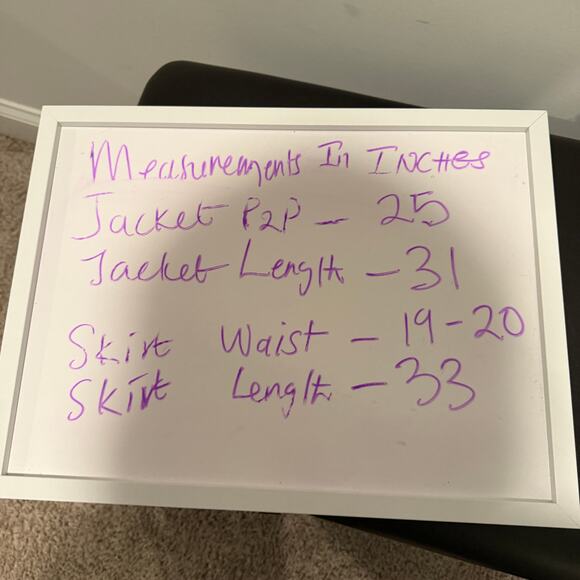 Measurements In INCHES
Jacket P2P - 25
Jacket Length - 31
Skirt Waist - 19-20
Skirt Length - 33